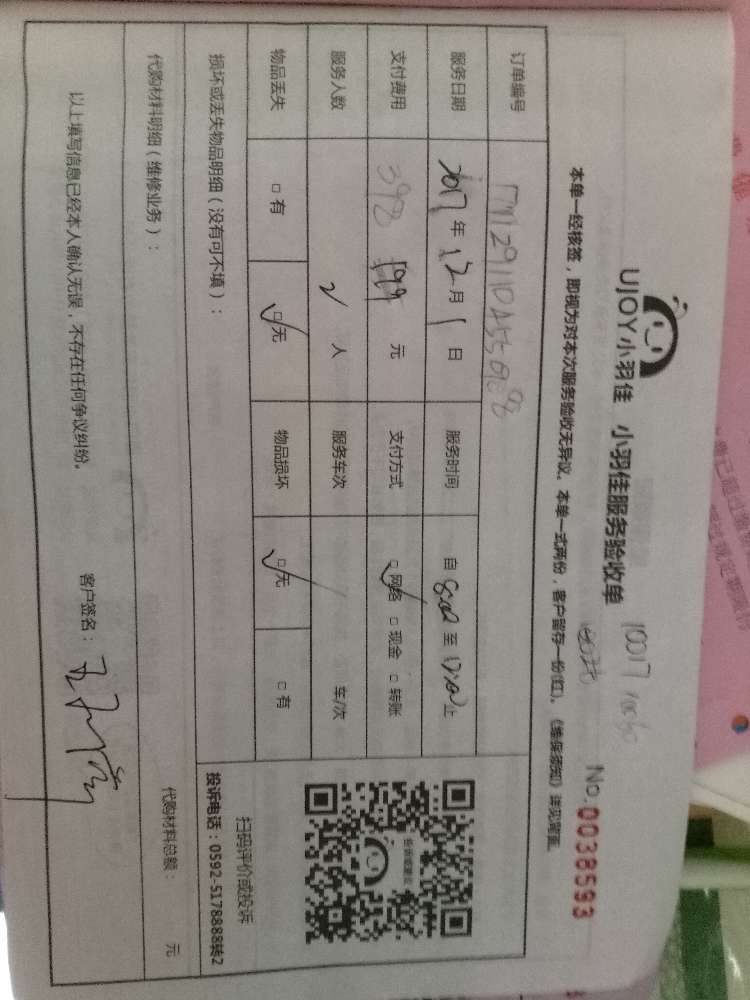 UJOY小羽佳 小羽佳服务验收单
No.0038593
本单一经核签，即视为对本次服务验收无异议。本单一式两份，客户留存一份(红)。《维保须知》详见背面。
订单编号
服务日期 2017年12月1日 服务时间 自8:00至12:00止
支付费用 398 199 元 支付方式 □网络 □现金 □转账
服务人数 2 人 服务车次 车/次
物品丢失 □有 □无 物品损坏 □无 □有
损坏或丢失物品明细（没有可不填）：
扫码评价或投诉
投诉电话：0592-5178888转2
代购材料明细（维修业务）：
代购材料总额： 元
以上填写信息已经本人确认无误，不存在任何争议纠纷。
客户签名：